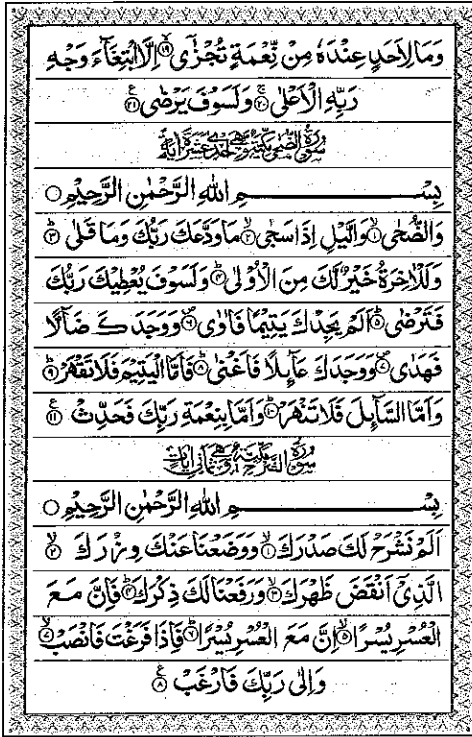 وَمَا لِاَحَدٍ عِنْدَهٗ مِنْ نِّعْمَةٍ تُجْزٰٓى ﴿۱۹﴾ اِلَّا ابْتِغَآءَ وَجْهِ
رَبِّهِ الْاَعْلٰى ﴿۲۰﴾ وَلَسَوْفَ يَرْضٰى ﴿۲۱﴾
سُوْرَةُ الضُّحٰى مَكِّيَّةٌ وَّهِيَ اِحْدٰى عَشْرَةَ اٰيَةً
بِسْمِ اللهِ الرَّحْمٰنِ الرَّحِيْمِ ○
وَالضُّحٰى ﴿۱﴾ وَالَّيْلِ اِذَا سَجٰى ﴿۲﴾ مَا وَدَّعَكَ رَبُّكَ وَمَا قَلٰى ﴿۳﴾
وَلَلْاٰخِرَةُ خَيْرٌ لَّكَ مِنَ الْاُوْلٰى ﴿۴﴾ وَلَسَوْفَ يُعْطِيْكَ رَبُّكَ
فَتَرْضٰى ﴿۵﴾ اَلَمْ يَجِدْكَ يَتِيْمًا فَاٰوٰى ﴿۶﴾ وَوَجَدَكَ ضَآلًّا
فَهَدٰى ﴿۷﴾ وَوَجَدَكَ عَآئِلًا فَاَغْنٰى ﴿۸﴾ فَاَمَّا الْيَتِيْمَ فَلَا تَقْهَرْ ﴿۹﴾
وَاَمَّا السَّآئِلَ فَلَا تَنْهَرْ ﴿۱۰﴾ وَاَمَّا بِنِعْمَةِ رَبِّكَ فَحَدِّثْ ﴿۱۱﴾
سُوْرَةُ اَلَمْ نَشْرَحْ مَكِّيَّةٌ وَّهِيَ ثَمَانِيْ اٰيَاتٍ
بِسْمِ اللهِ الرَّحْمٰنِ الرَّحِيْمِ ○
اَلَمْ نَشْرَحْ لَكَ صَدْرَكَ ﴿۱﴾ وَوَضَعْنَا عَنْكَ وِزْرَكَ ﴿۲﴾
الَّذِيْٓ اَنْقَضَ ظَهْرَكَ ﴿۳﴾ وَرَفَعْنَا لَكَ ذِكْرَكَ ﴿۴﴾ فَاِنَّ مَعَ
الْعُسْرِ يُسْرًا ﴿۵﴾ اِنَّ مَعَ الْعُسْرِ يُسْرًا ﴿۶﴾ فَاِذَا فَرَغْتَ فَانْصَبْ ﴿۷﴾
وَاِلٰى رَبِّكَ فَارْغَبْ ﴿۸﴾